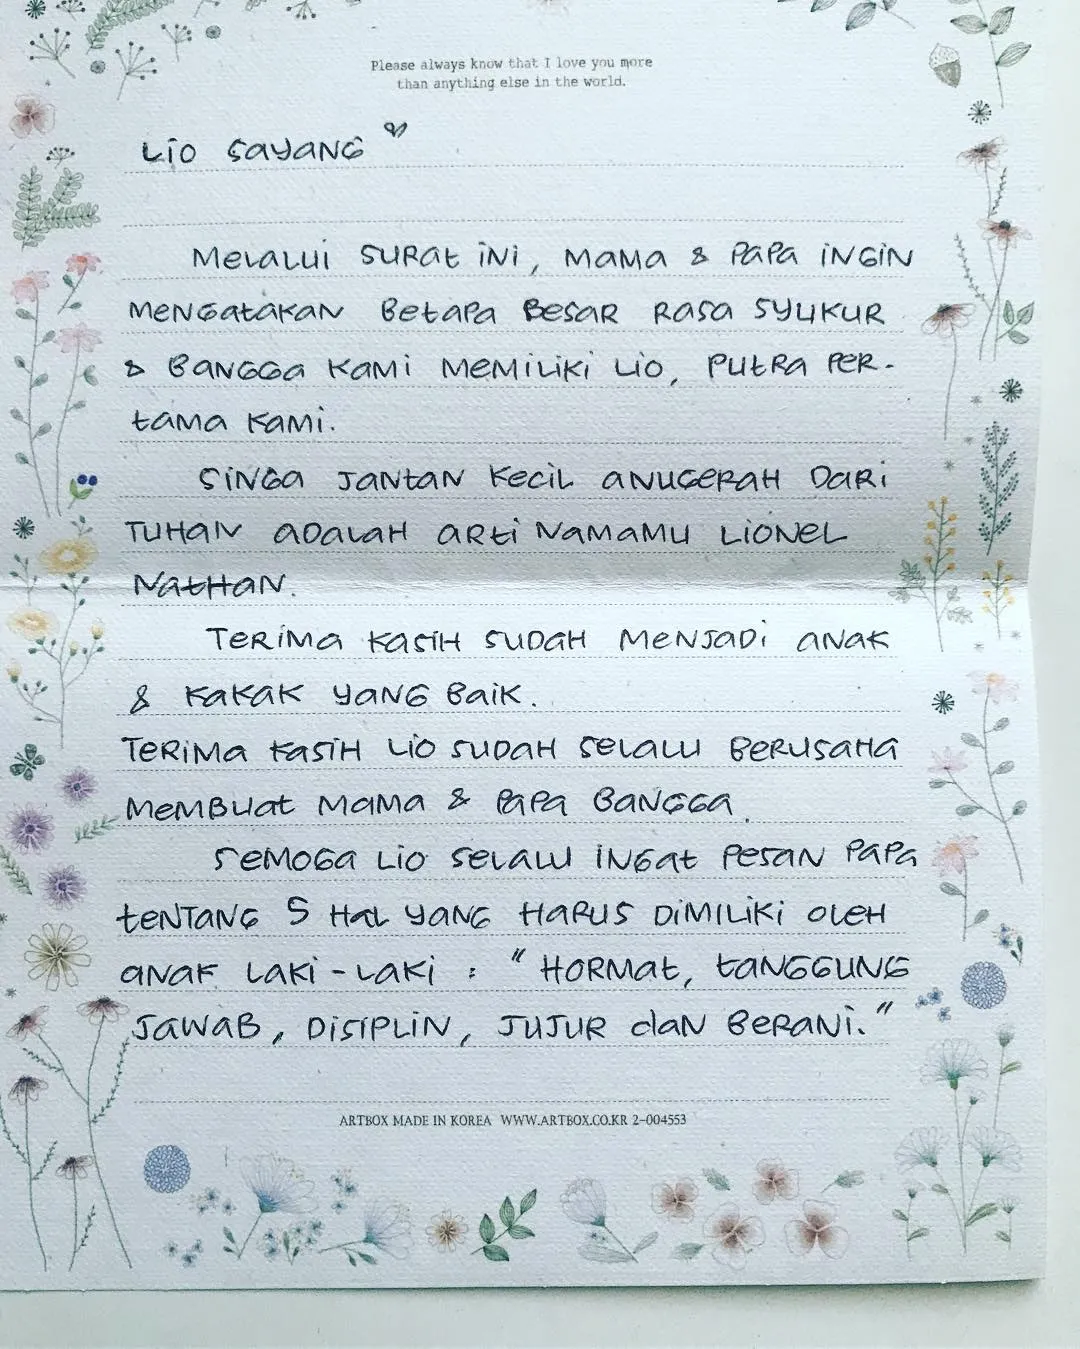 Please always know that I love you more
than anything else in the world.
Lio sayang
Melalui surat ini, Mama & Papa ingin
mengatakan betapa besar rasa syukur
& bangga kami memiliki Lio, putra per-
tama kami.
Singa jantan kecil anugerah dari
Tuhan adalah arti namamu Lionel
Nathan.
Terima kasih sudah menjadi anak
& kakak yang baik.
Terima kasih Lio sudah selalu berusaha
membuat Mama & Papa bangga.
Semoga Lio selalu ingat pesan Papa
tentang 5 hal yang harus dimiliki oleh
anak laki-laki : "Hormat, tanggung
jawab, disiplin, jujur dan berani."
ARTBOX MADE IN KOREA WWW.ARTBOX.CO.KR 2-004553